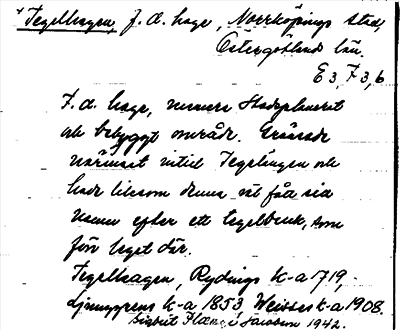 Tegelhagen, f. d. hage, Norrköpings stad,
Östergötlands län.
E 3, F 3, 6
F. d. hage, numera stadsplanerat
och bebyggt område. Gränsade
närmast intill Tegelängen och
hade liksom denna väl fått sitt
namn efter ett tegelbruk, som
förr legat där.
Tegelhagen, Rydings k-a 1719,
Ljunggrens k-a 1853 Weisses k-a 1908.
1942.